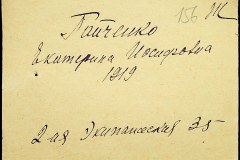 156 Ж
Гойченко
Екатерина Иосифовна
1919
2-ая Экипажеская 35